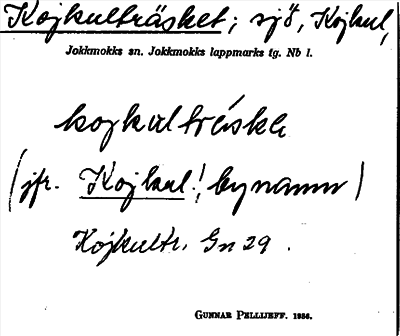 Kojkulträsket; sjö, Kojkul,
Jokkmokks sn. Jokkmokks lappmarks tg. Nb l.
kojkulträske
(jfr. Kojkul!, bynamn)
Kojkultr. Gn 29.
GUNNAR PELLIJEFF. 1936.